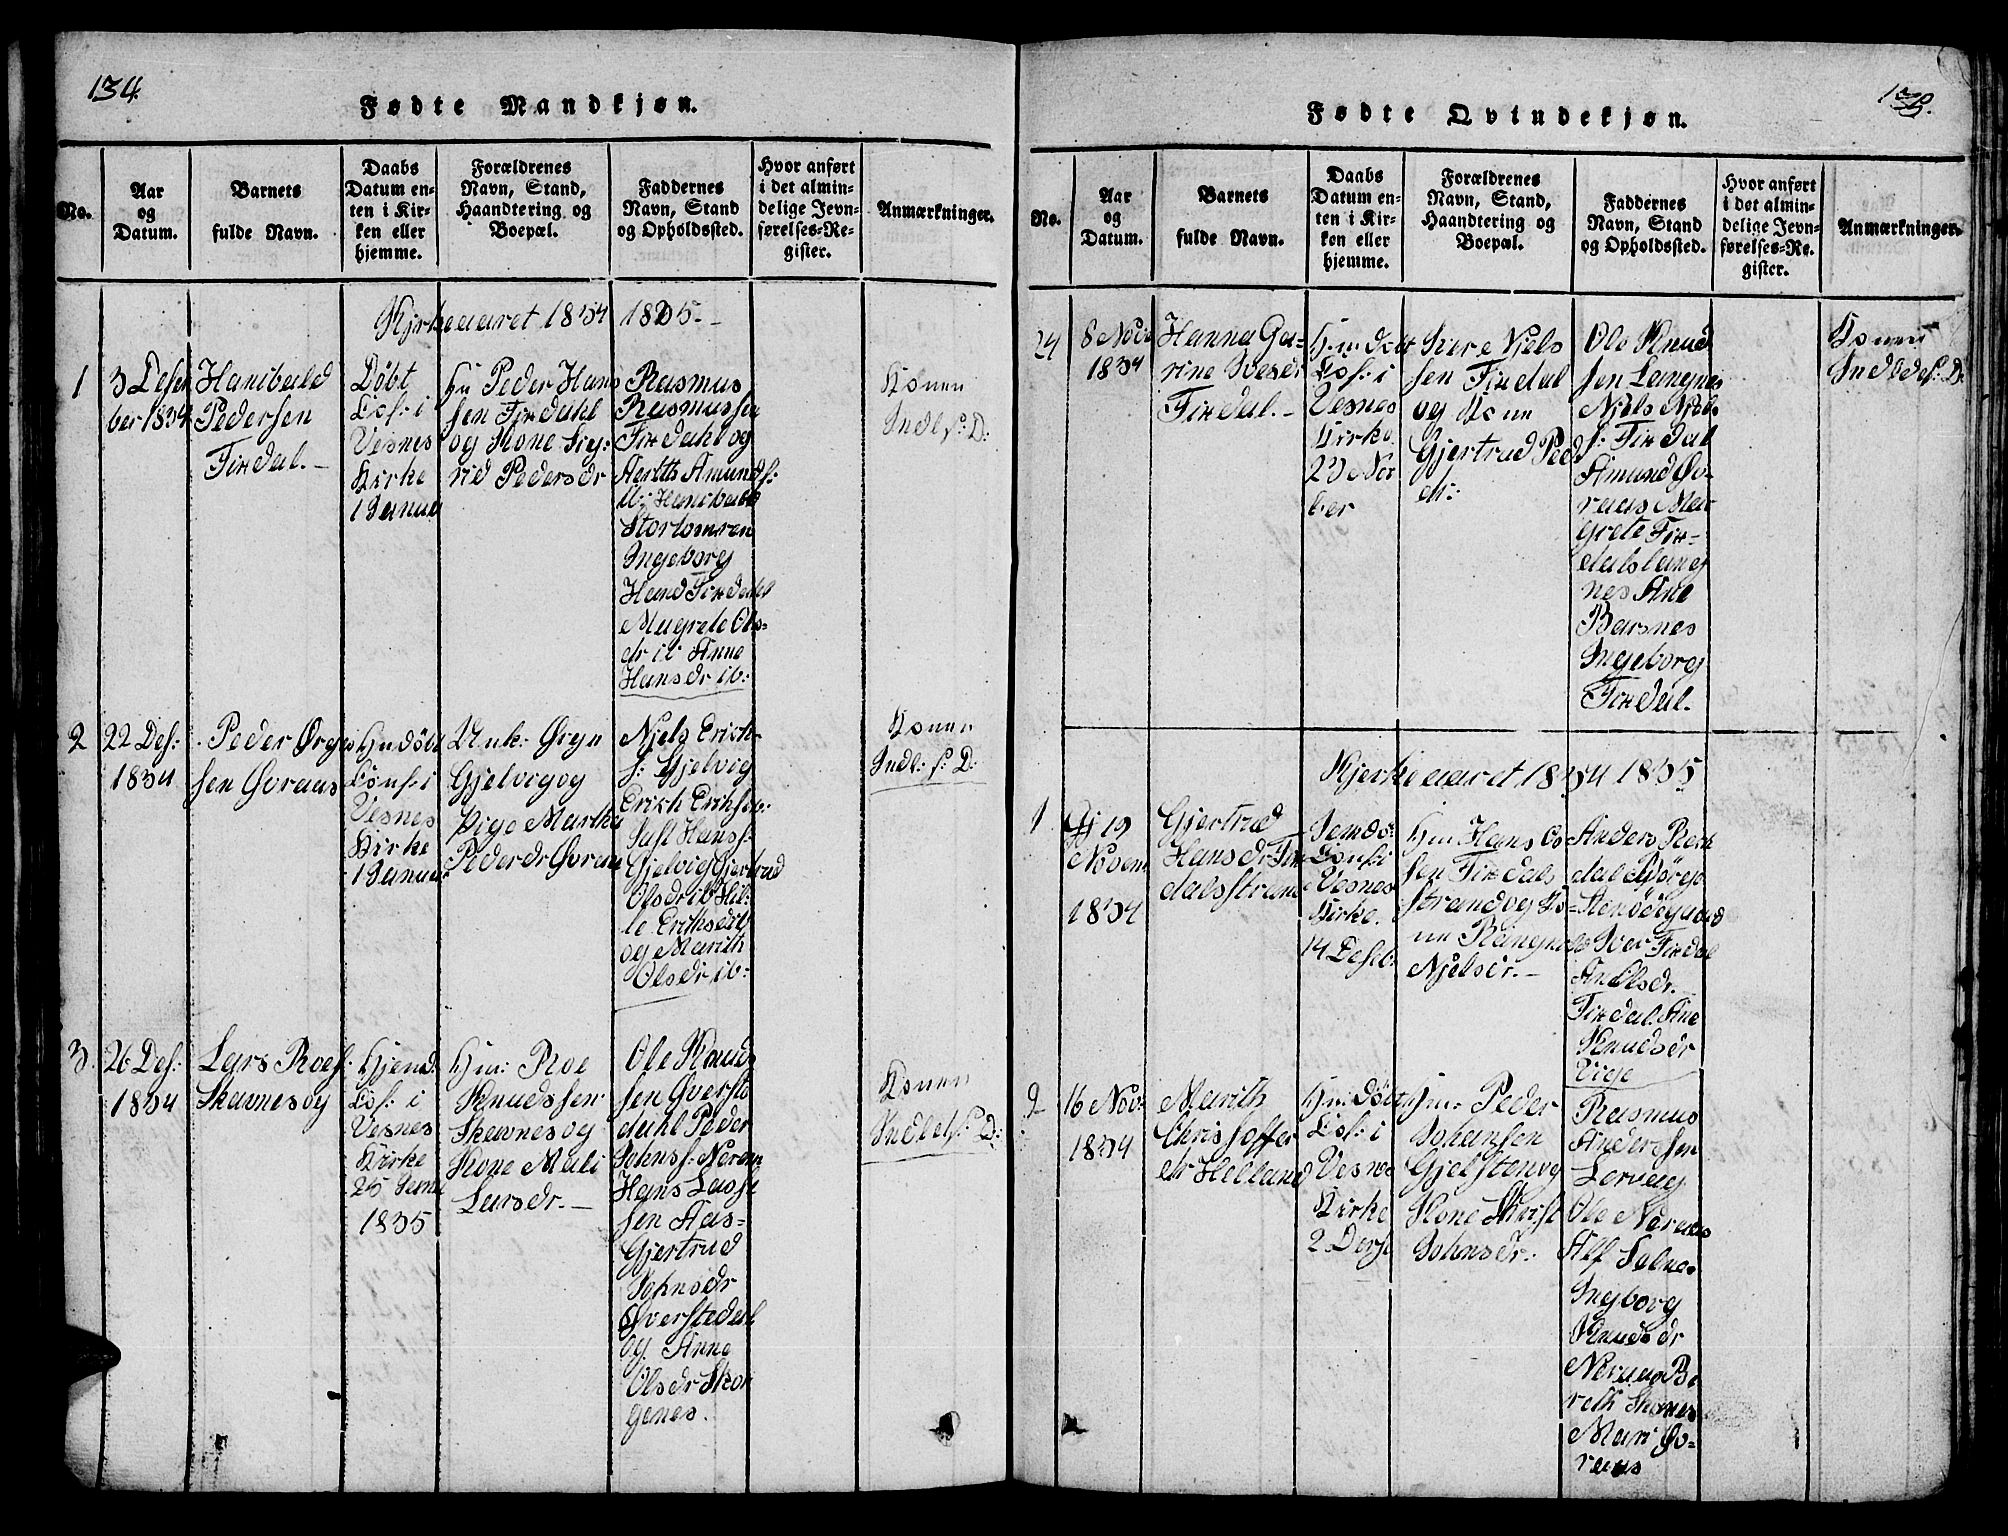 134
Fødte Mandkjøn.
No.
Aar
og
Datum.
Barnets
fulde Navn.
Daabs
Datum en-
ten i Kir-
ken eller
hjemme.
Forældrenes
Navn, Stand,
Haandtering og
Boepæl.
Faddernes
Navn, Stand
og Opholdssted.
Hvor anført
i det almin-
delige Jevn-
førelses-Re-
gister.
Anmærkninger.
Kjrkeaaret 1834 1835.-
1
3 Deser
ber 1834
Hanibald
Pedersen
Fixdal.-
Døbt
Cof: i
Vesnes
Kirke
1 Janua
Peder Hans
sen Fixdahl
og Kone Sig:
rid Pedersdr
Rasmus
Rasmussen
Fixdahl og
Amund f:
ib: Hanibald
Ingeborg
Fixdahl
Magrete Ols-
dr ib Anne
Hansdr ib:
Konen
Indl f: D:
2
22 Des:
1834
Peder Ørgns
sen Øvraas
Hjndøbt
Conf: i
Vesnes
Kirke
1 Janua
Unk: Ørgn
Gjelvig og
Pige Martha
Pederdr Øvraa
Njels Erich-
f: Gjelvig
Erich Erichs ib:
Hans f:
Gjelvig Gjertrud
Olsdr ib Hil-
le Eriksdr ib
og Marith
Olsdr ib:
Konen
Indl: f: D:
3.
26 Des:
1834
Lars Roes:
Skavnes og
Hjemd:
Cof: i
Vesnes
Kirke
25 Janu
1835
Hm: Roe
Knudssen
Skavnes og
Kone Mali
Larsdr.-
Ole Knud
sen Øverste
dahl Peder
Johnsf: Neraas
Hans Lasse
sen Aas-
Gjertrud
Johnsdr
Øverstedal
og Anne
Olsdr Skor
genes.
Konen
Indlel f: D:
Fødte Qvindekjøn.
No.
Aar
og
Datum.
Barnets
fulde Navn.
Daabs
Datum en-
ten i Kir-
ken eller
hjemme.
Forældrenes
Navn, Stand,
Haandtering og
Boepæl.
Faddernes
Navn, Stand
og Opholdssted.
Hvor anført
i det almin-
delige Jevn-
førelses-Re-
gister.
Anmærkninger.
24
8 Nov
1834
Hanna Ga-
rine
Fixdal.-
Hm: døbt
Cof: i
Vesnes
Kirke
ber
Njels
sen Fixdal
og Kone
Gjertrud Peds
dr:
Ole Knud
sen Langnes
Njels Njels
f: Fixdal
Amund Øv-
raas Mar
grete Fix-
dals Lang
nes Ane
Barsnes
Ingeborg
Fixdal.
Konen
Indlde f: D:
Kjerkeaaret 1834 1835
1
19
Novem
1834
Gjertrud
Hansdr Fix
dalsstrand
Conf: i
Vesnes
Kirke.
14 Deseb:
Hm: Hans Ol
sen Fixdals
strand og Ko-
ne
Njelsdr.-
Anders Rek
dal Børge
Stenødegaard
Iver Fixdal
An Olsdr.-
Fixdal. Ane
Knudsdr
Vige
2
16 Nov
1834
Marith
Chrisoffer
dr Helland
Hm: døbt
Cof: i
Vesnes
Kirke
Hm: Peder
Johansen
Gjelsten og
Kone
Johnsdr:
Rasmus
Andersen
Lervaag
Ole Neraas
Alf Salnes
Ingborg
Knudsdr
Neraas Be
reth
Mari Øv-
raas